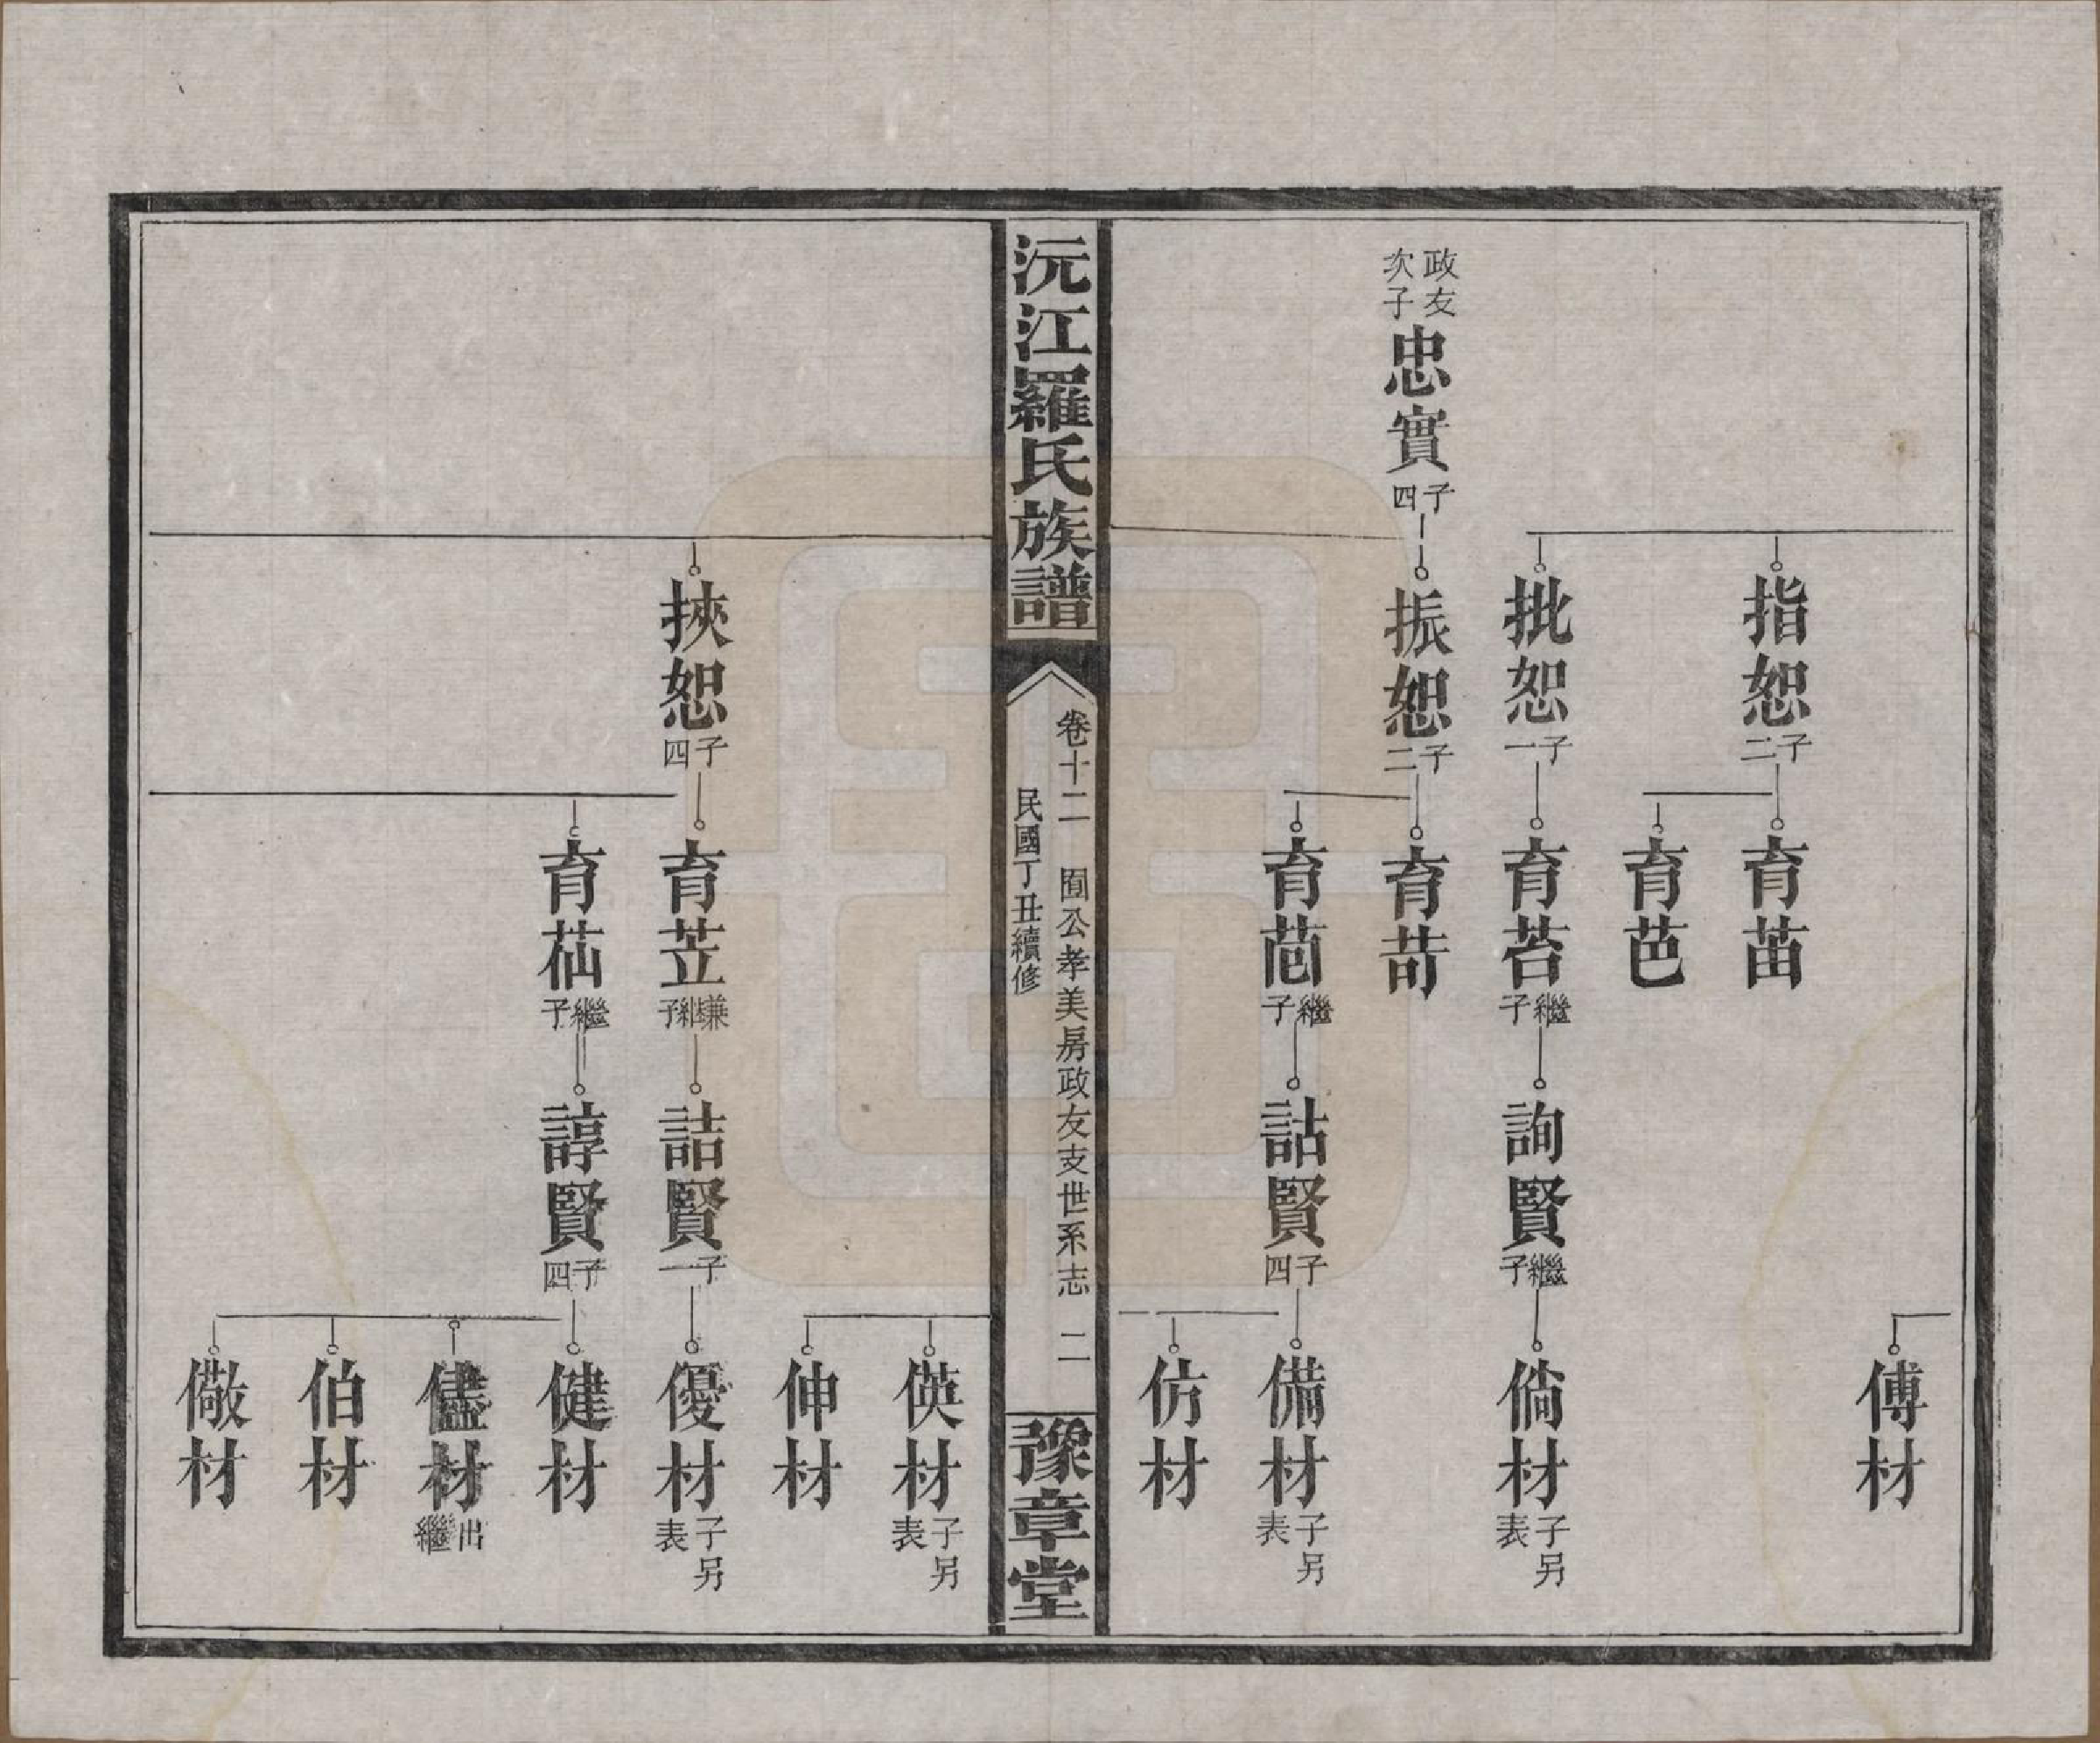 傅材
指恕 子二
育苗
育芭
批恕 子一
育苔 繼子
詢賢 繼子
倘材 子另表
政友次子
忠實 子四
振恕 子二
育苛
育茴 繼子
詁賢 子四
備材 子另表
仿材
沅江羅氏族譜
卷十二 囿公孝美房政友支世系志 二
民國丁丑續修
豫章堂
偀材 子另表
伸材
挾恕 子四
育苙 兼繼子
詰賢 子一
優材 子另表
育苮 繼子
諄賢 子四
健材
儘材 出繼
伯材
儆材